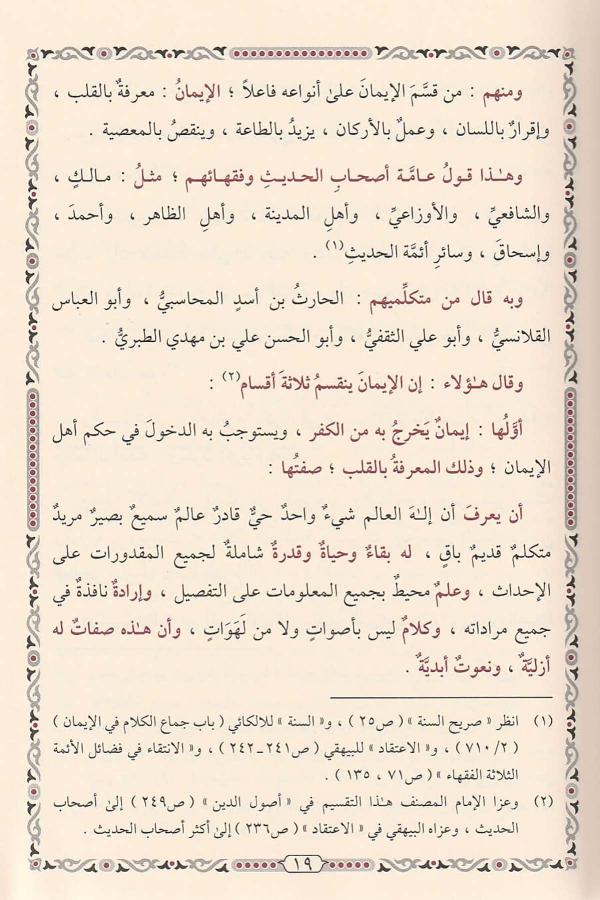 ومنهم : من قسَّمَ الإيمانَ على أنواعه فاعلاً ؛ الإيمانُ : معرفةٌ بالقلب ،
وإقرارٌ باللسان ، وعملٌ بالأركان ، يزيدُ بالطاعة ، وينقصُ بالمعصية .
وهـٰذا قولُ عـامَّـة أصحـابِ الحـديـثِ وفقهـائهـم ؛ مثـلُ : مـالـكٍ ،
والشافعيِّ ، والأوزاعيِّ ، وأهلِ المدينة ، وأهلِ الظاهر ، وأحمدَ ،
وإسحاقَ ، وسائرِ أئمَّة الحديثِ(١) .
وبه قال من متكلِّميهم : الحارثُ بن أسدٍ المحاسبيُّ ، وأبو العباس
القلانسيُّ ، وأبو علي الثقفيُّ ، وأبو الحسن علي بن مهدي الطبريُّ .
وقال هـٰؤلاء : إن الإيمانَ ينقسمُ ثلاثةَ أقسام(٢) :
أوَّلُها : إيمانٌ يَخرجُ به من الكفر ، ويستوجبُ به الدخولَ في حكم أهل
الإيمان ؛ وذلك المعرفةُ بالقلب ؛ صفتُها :
أن يعرفَ أن إلـٰهَ العالم شيءٌ واحدٌ حيٌّ قادرٌ عالمٌ سميعٌ بصيرٌ مريدٌ
متكلمٌ قديمٌ باقٍ ، له بقاءٌ وحياةٌ وقدرةٌ شاملةٌ لجميع المقدورات على
الإحداث ، وعلمٌ محيطٌ بجميع المعلومات على التفصيل ، وإرادةٌ نافذةٌ في
جميع مراداته ، وكلامٌ ليس بأصواتٍ ولا من لَهَوَاتٍ ، وأن هـٰذه صفاتٌ له
أزليَّةٌ ، ونعوتٌ أبديَّةٌ .
(١) انظر « صريح السنة » ( ص٢٥ ) ، و« السنة » لللالكائي ( باب جماع الكلام في الإيمان )
( ٧١٠/٢ ) ، و« الاعتقاد » للبيهقي ( ص٢٤١-٢٤٢ ) ، و« الانتقاء في فضائل الأئمة
الثلاثة الفقهاء » ( ص٧١ ، ١٣٥ ) .
(٢) وعزا الإمام المصنف هـٰذا التقسيم في « أصول الدين » ( ص٢٤٩ ) إلى أصحاب
الحديث ، وعزاه البيهقي في « الاعتقاد » ( ص٢٣٦ ) إلى أكثر أصحاب الحديث .
١٩